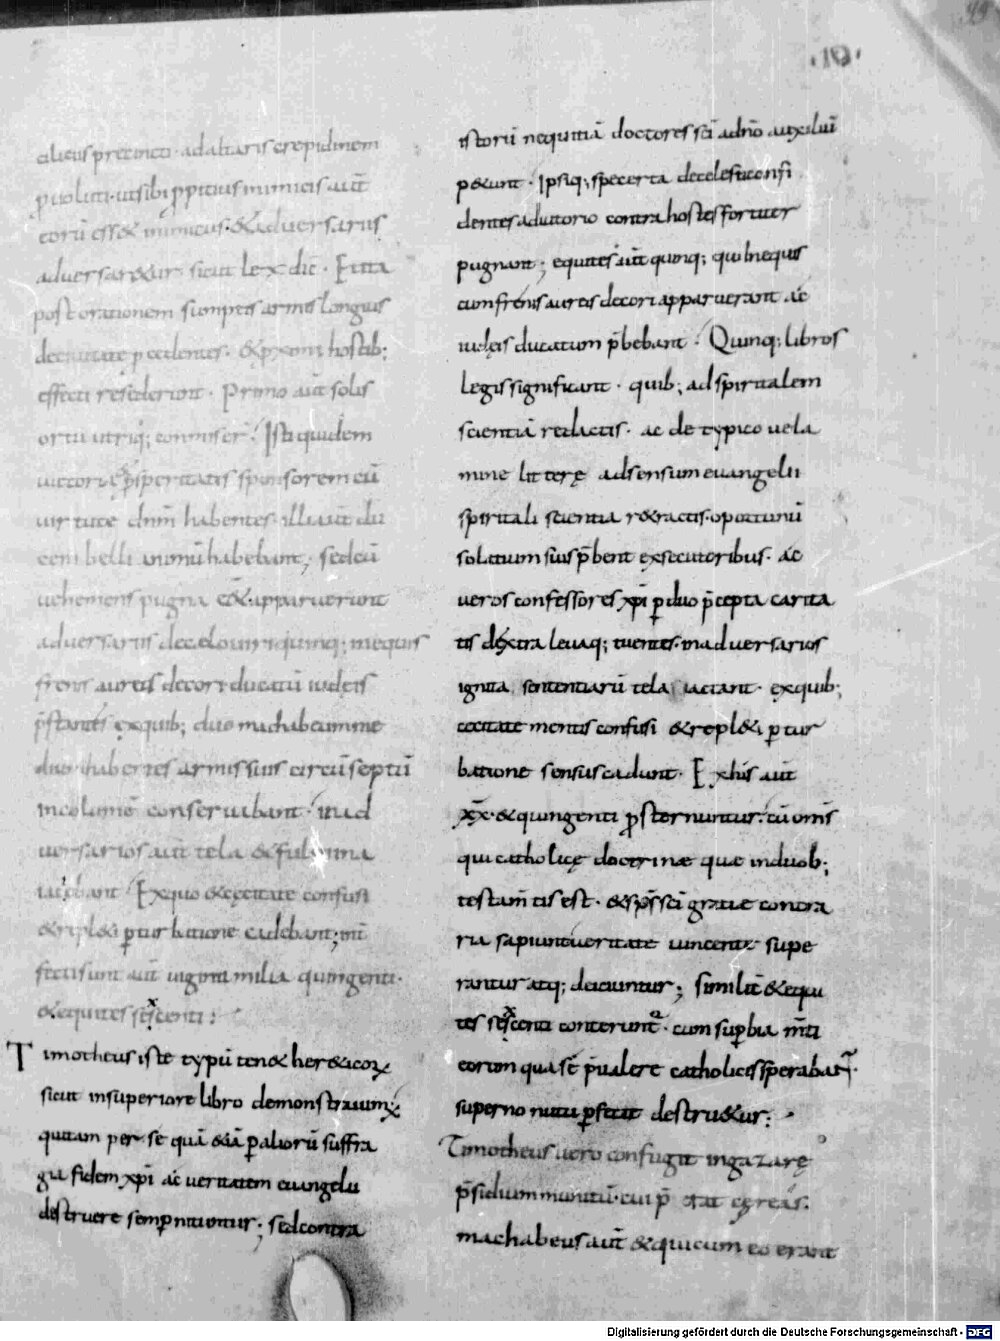 ·19·
ciliciis precincti· ad altaris crepidinem
puoluti· ut sibi ppitius inimicis aut̄
eorū ess& inimicus· & aduersariis
aduersar&ur sicut lex dic̄· Et ita
post orationem sumptis armis longius
de ciuitate pcedentes· & pximi hostib;
effecti resederunt· Primo aut̄ solis
ortu utriq; commiser̄· Isti quidem
uictorie & psperitatis sponsorem cū
uirtute dnm̄ habentes· illi aut̄ du
cem belli animū habebant; sed cū
uehemens pugna ēet· apparuerunt
aduersariis de celo uiri quinq; in equis
frenis aureis decori ducatū iudeis
p̄stantes ex quib; duo machabeum me
diū habentes armis suis circū septū
incolumē conseruabant· in ad
uersarios aut̄ tela & fulmina
iaciebant Ex quo & cecitate confusi
& repl&i pturbatione cadebant; int̄
fecti sunt aut̄ uiginti milia quingenti·
& equites sexcenti:
Timotheus iste typū ten& her&icorx
sicut in superiore libro demonstrauim;
qui tam per se quā &iā p aliorū suffra
gia fidem xp̄i ac ueritatem euangelii
destruere semp nituntur; sed contra
istorū nequitiā doctores sc̄i ad dn̄o auxiliū
petunt· Ipsiq; spe certa de celesti confi
dentes adiutorio contra hostes fortiter
pugnant; equites aut̄ quinq; qui in equis
cum frenis aureis decori apparuerant ac
iudeis ducatum p̄bebant· Quinq; libros
legis significant· quib; ad spiritalem
scientiā redactis· ac de typico uela
mine littere ad sensum euangelii
spiritali scientia r&ractis· oportunū
solatium suis p̄bent exsecutoribus· ac
ueros confessores xp̄i p duo p̄cepta carita
tis dextra leuaq; tuentes· in aduersarios
ignita sententiarū tela iactant· ex quib;
cecitate mentis confusi & repl&i ptur
batione sensus cadunt· Ex his aut̄
xx· & quingenti psternuntur· cū om̄s
qui catholice doctrinæ quæ in duob;
testam̄tis est· & sp̄s sc̄i gratiæ contra
ria sapiunt ueritate uincente supe
rantur atq; deiciuntur; similit̄ & equi
tes sexcenti conteruntr· cum supbia m̄ti
eorum qua se p̄ualere catholicis sperabant·
superno nutu pfecte destru&ur:
Timotheus uero confugit in gazare
p̄sidium munitū· cui p̄erat cereas·
machabeus aut̄ & qui cum eo erant
Digitalisierung gefördert durch die Deutsche Forschungsgemeinschaft - DFG